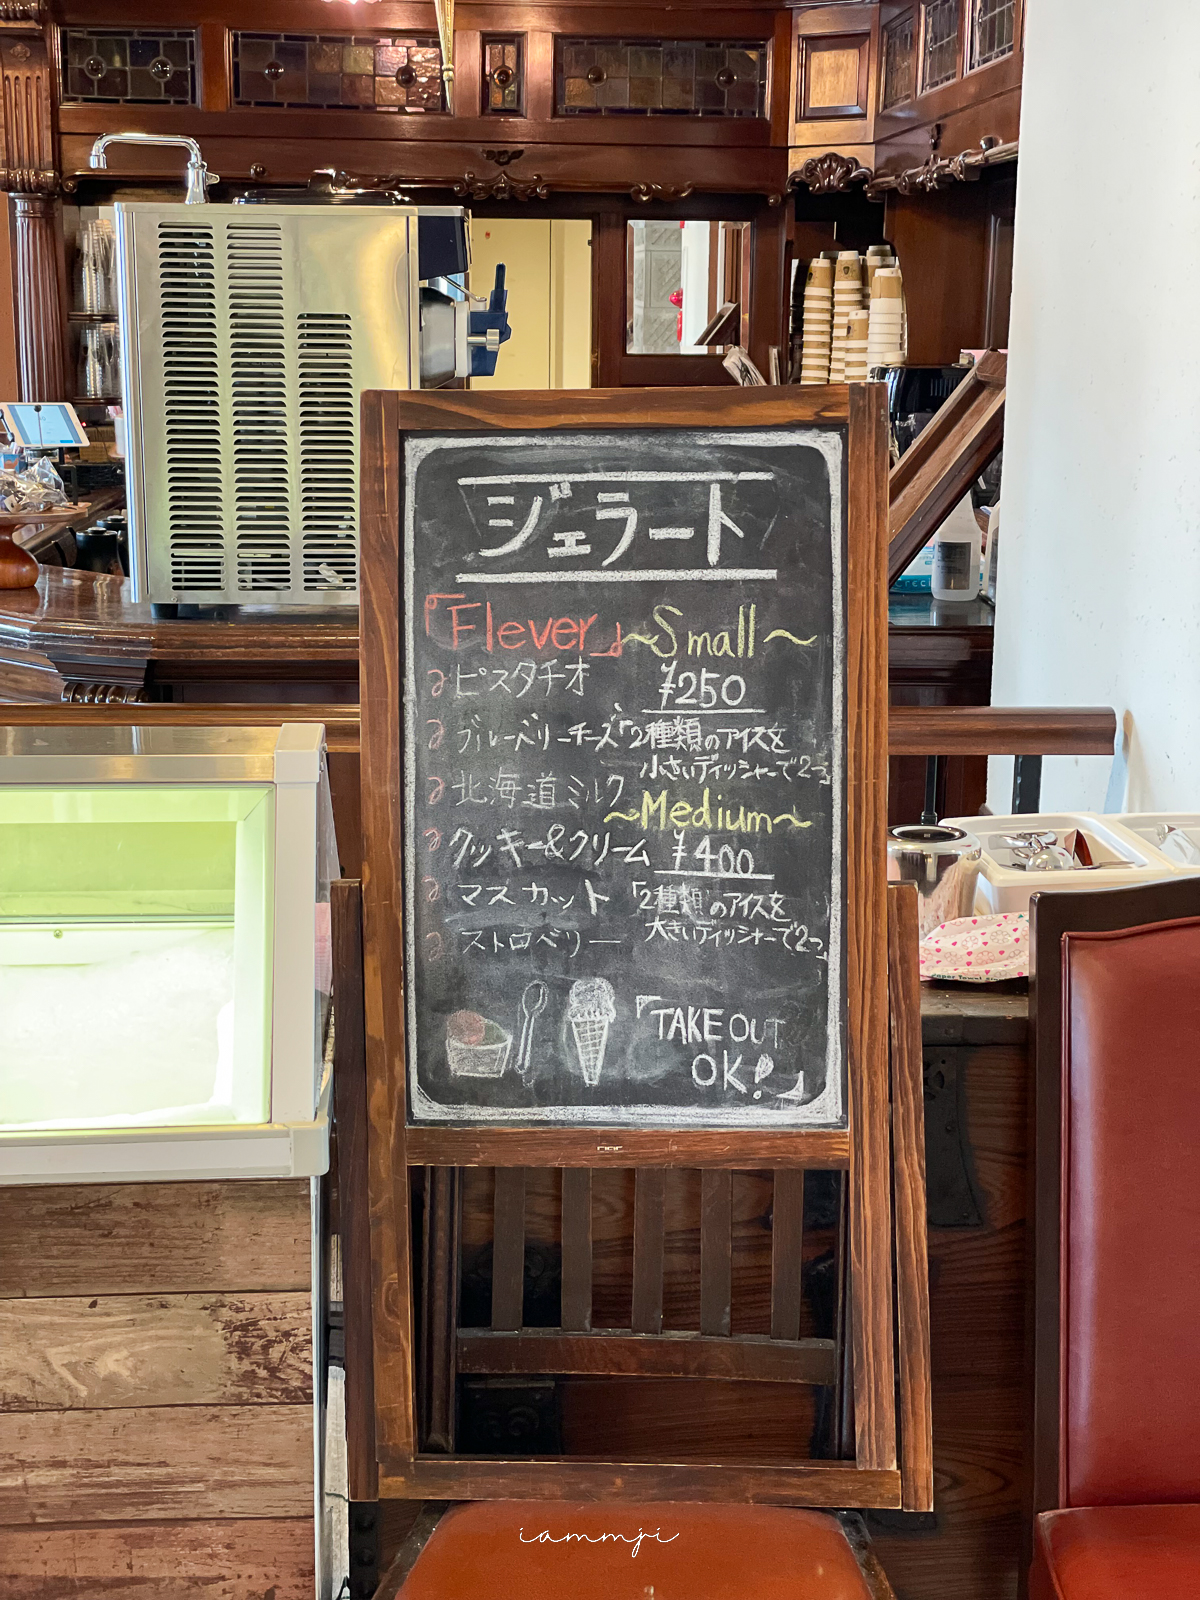 ジェラート
「Flever」
ピスタチオ
ブルーベリーチーズ
北海道ミルク
クッキー&クリーム
マスカット
ストロベリー
～Small～
¥250
「2種類のアイスを
小さいディッシャーで2つ」
～Medium～
¥400
「2種類のアイスを
大きいディッシャーで2つ」
「TAKE OUT
OK!」
iammji